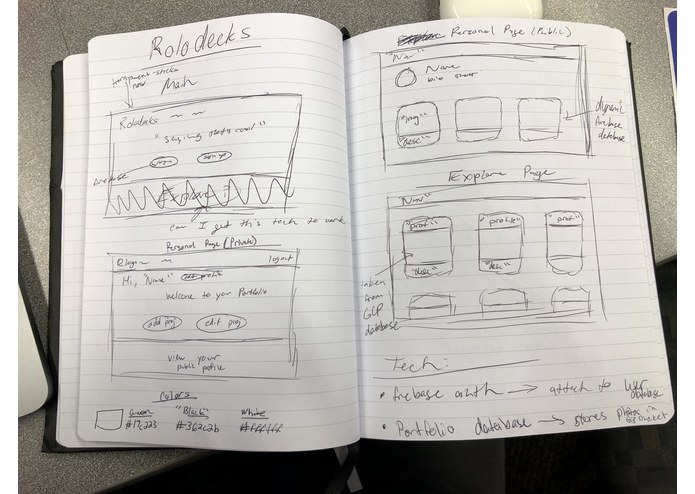 Rolodecks
transparent-sticky
nav
Main
Rolodecks
"
"
Explore it
can I get this tech to work
Personal Page (Private)
logout
Hi, "Name"
profile
welcome to your Portfolio
add proj
edit proj
view your
public profile
Colors
Green
"Black"
White
#362c2b
#ffffff
Personal Page (Public)
"Nav"
Name
bio
"img"
"desc"
dynamic
firebase
database
Explore Page
"Nav"
"prof"
"profile"
"prof"
"desc"
"desc"
taken
from
GCP
database
Tech:
• firebase auth → attach to user
database
• Portfolio database → stores photos in
bucket